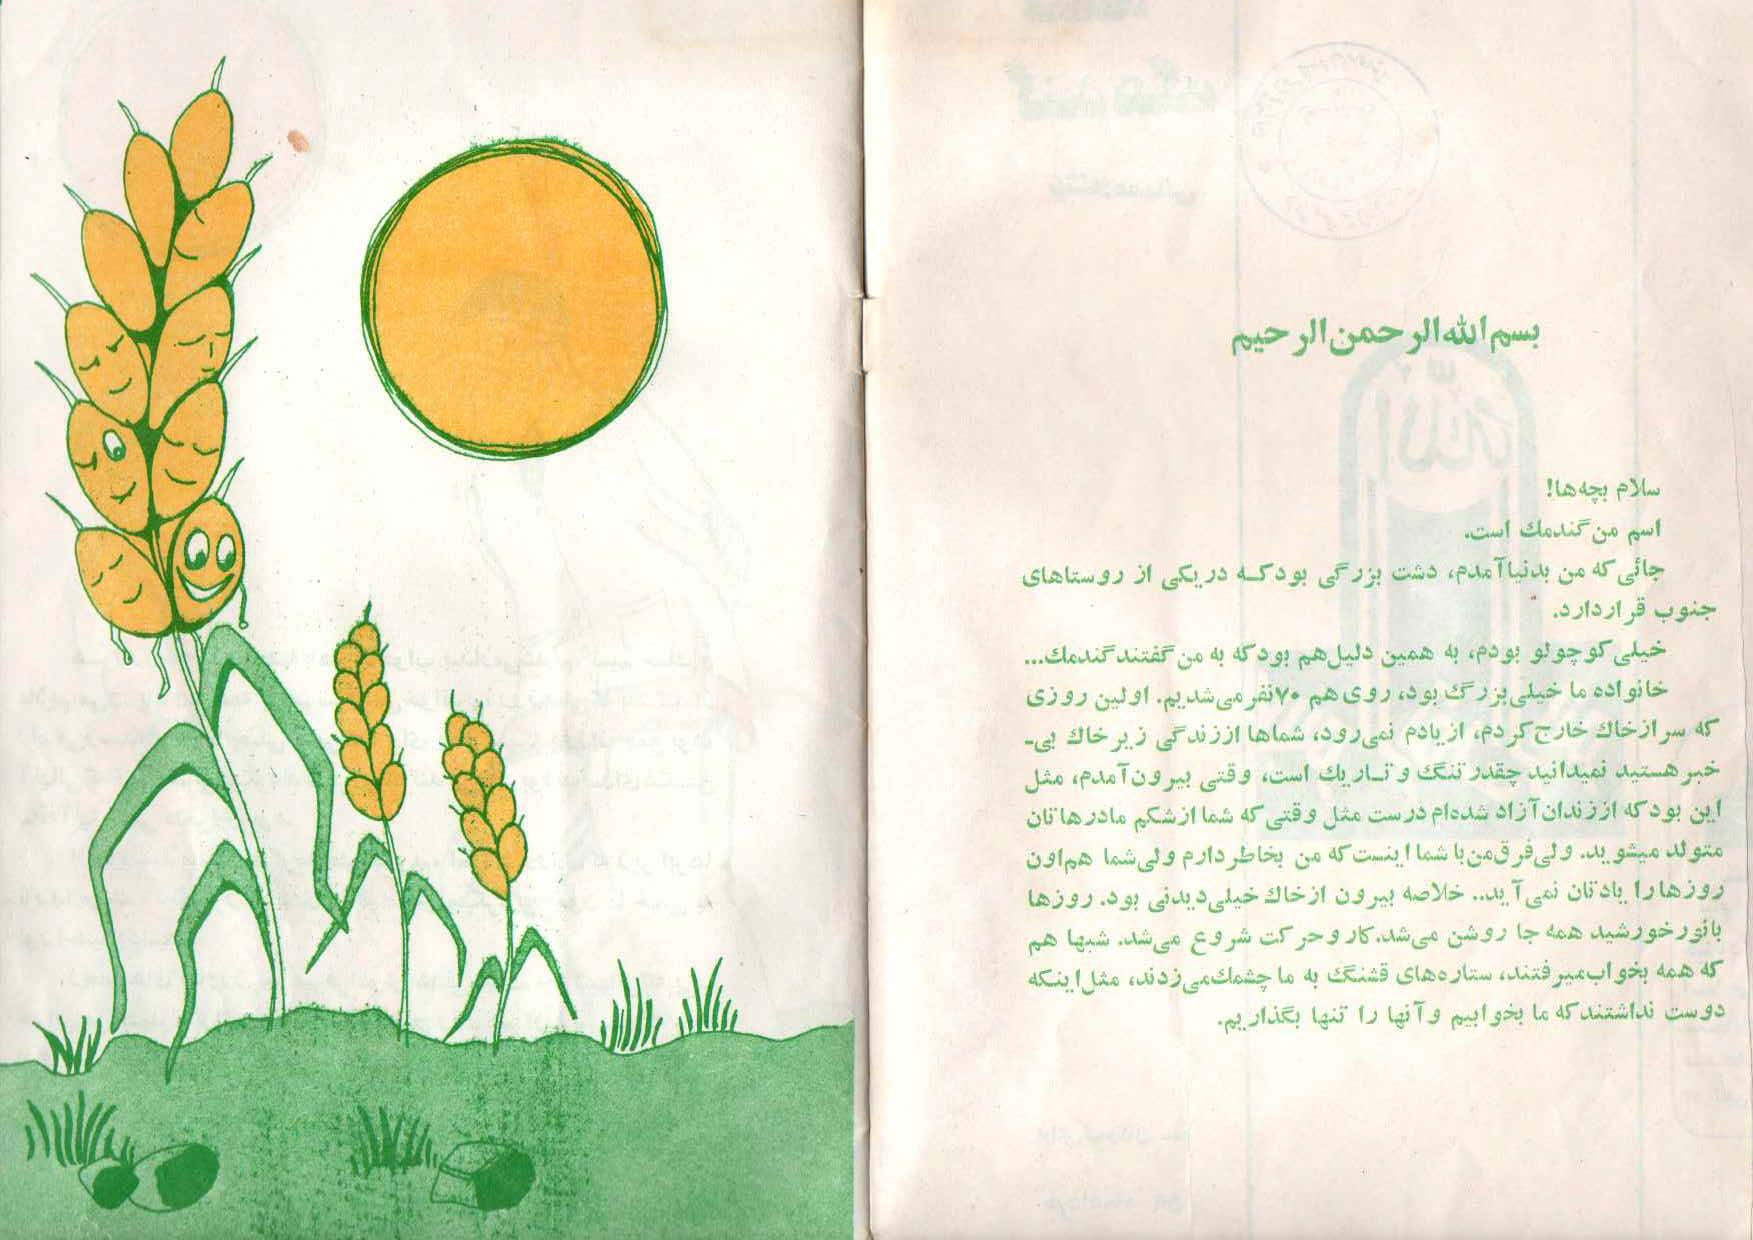 بسم الله الرحمن الرحیم
سلام بچه‌ها!
اسم من گندمك است.
جائی که من بدنیا آمدم، دشت بزرگی بود که دریکی از روستاهای
جنوب قرار دارد.
خیلی کوچولو بودم، به همین دلیل هم بود که به من گفتند گندمك...
خانواده ما خیلی بزرگ بود، روی هم ۷۰ نفر می‌شدیم. اولین روزی
که سر از خاك خارج کردم، از یادم نمی‌رود، شماها از زندگی زیر خاك بی-
خبر هستید نمیدانید چقدر تنگ و تاریك است، وقتی بیرون آمدم، مثل
این بود که از زندان آزاد شده‌ام درست مثل وقتی که شما از شکم مادرهاتان
متولد میشوید. ولی فرق من با شما اینست که من بخاطر دارم ولی شما هم اون
روزها را یادتان نمی‌آید.. خلاصه بیرون از خاك خیلی دیدنی بود. روزها
با نور خورشید همه جا روشن می‌شد. کار و حرکت شروع می‌شد. شبها هم
که همه بخواب میرفتند، ستاره‌های قشنگ به ما چشمك می‌زدند، مثل اینکه
دوست نداشتند که ما بخوابیم و آنها را تنها بگذاریم.